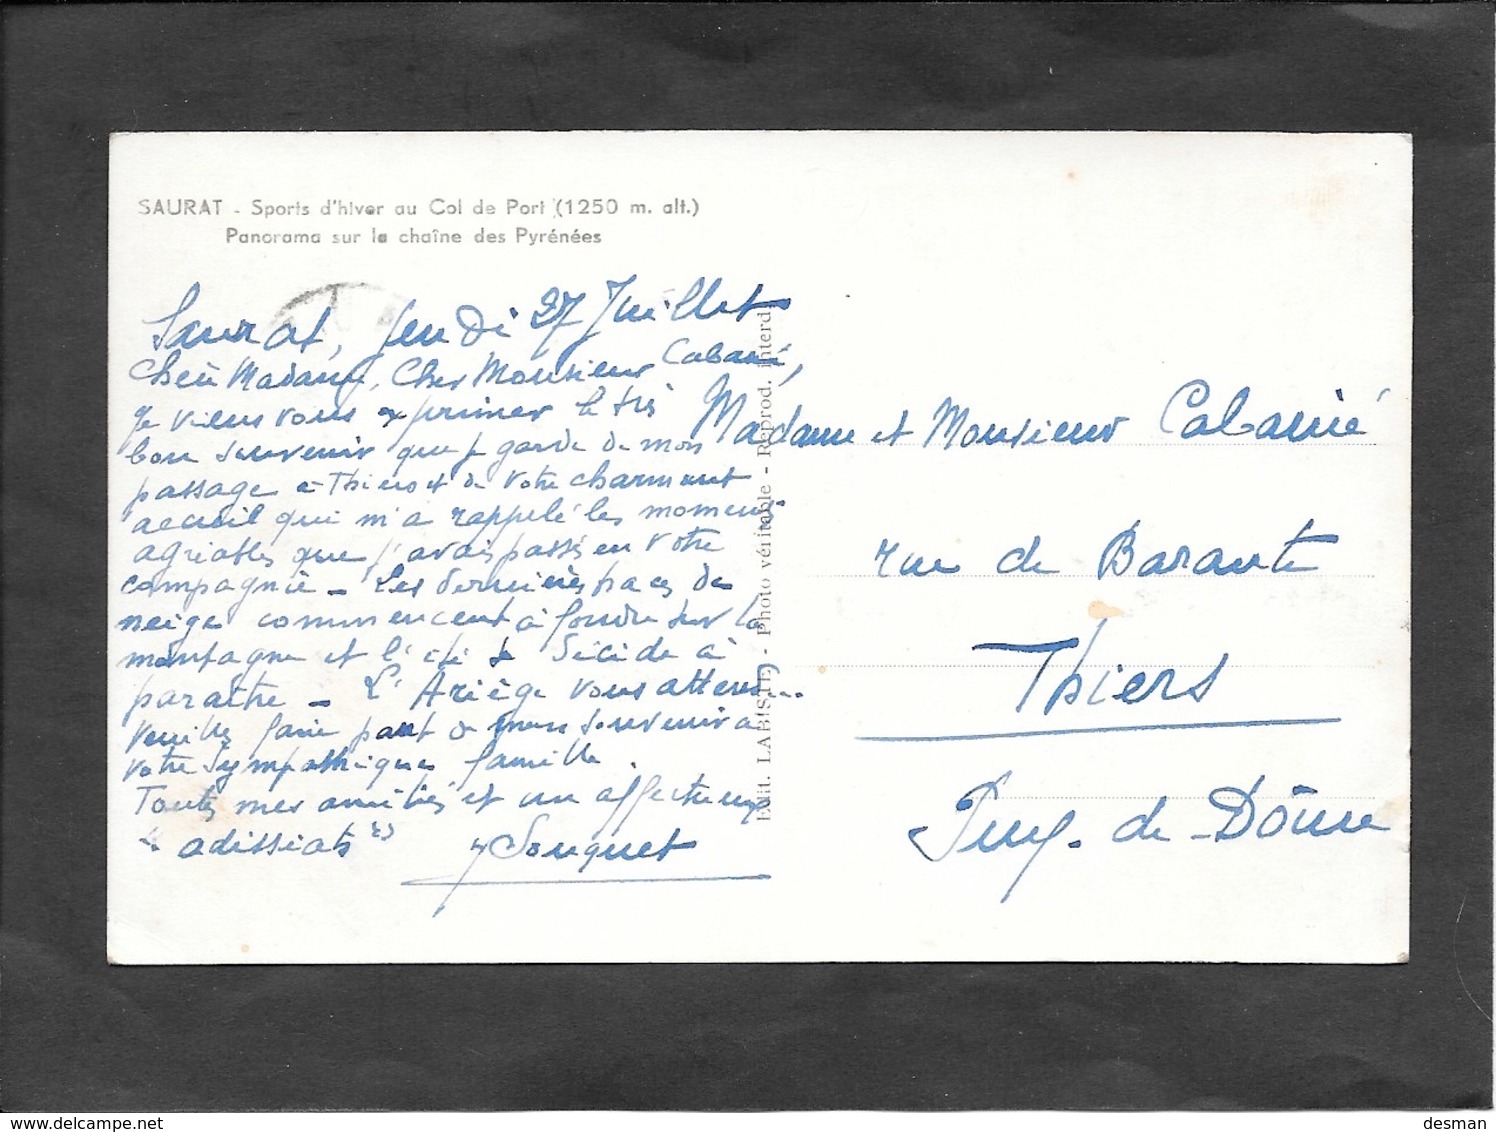 SAURAT - Sports d'hiver au Col de Port (1250 m. alt.)
Panorama sur la chaîne des Pyrénées
Saurat, Jeudi 27 Juillet
Chère Madame, Cher Monsieur Cabanié,
Je viens vous exprimer le très
bon souvenir que je garde de mon
passage à Thiers et de votre charmant
accueil qui m'a rappelé les moments
agréables que j'avais passés en votre
compagnie - Les dernières traces de
neige commencent à fondre sur la
montagne et l'été se décide à
paraître - L'Ariège vous attend...
Veuillez faire part de mon souvenir à
votre sympathique famille.
Toutes mes amitiés et un affectueux
"adissiats" Souquet
Edit. LABISTE - Photo véritable - Reprod. interd.
Madame et Monsieur Cabanié
rue de Barante
Thiers
Puy-de-Dôme
delcampe.net
desman